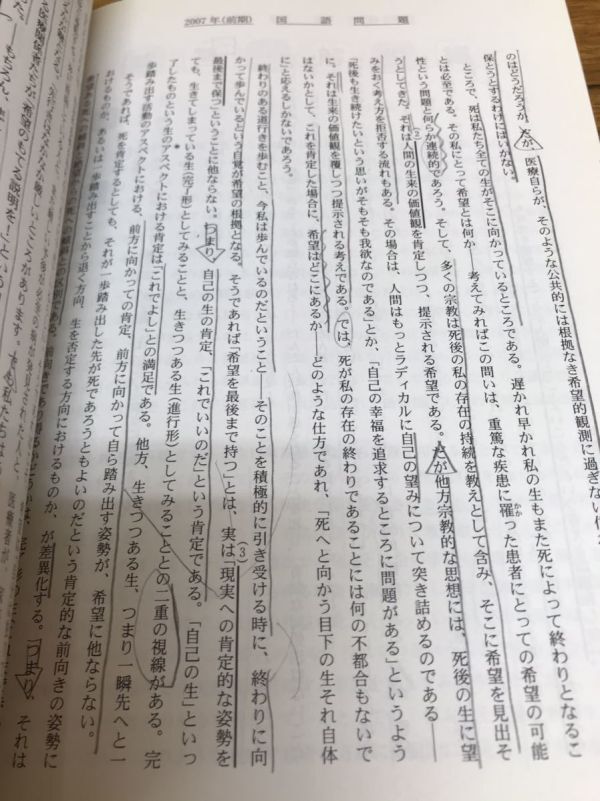 2007年(前期) 国語問題
のはどうだろうか。だが、医療自らが、そのような公共的には根拠なき希望的観測に過ぎない
保とうとするわけにはいかない。
ところで、死は私たち全ての生がそこに向かっているところである。遅かれ早かれ私の生もまた死によって終わりとなるこ
とは必至である。その私にとって希望とは何か――考えてみればこの問いは、重篤な疾患に罹った患者にとっての希望の可能
かか
性という問題と何らか連続的であろう。そして、多くの宗教は死後の私の存在の持続を教えとして含み、そこに希望を見出そ
うとしてきた。それは人間の生来の価値観を肯定しつつ、提示される希望である。だが他方宗教的な思想には、死後の生に望
(2)
みをおく考え方を拒否する流れもある。その場合は、人間はもっとラディカルに自己の望みについて突き詰めるのである――
「死後も生き続けたいという思いがそもそも我欲なのである」とか、「自己の幸福を追求するところに問題がある」というよう
に、それは生来の価値観を覆しつつ提示される考えである。では、死が私の存在の終わりであることには何の不都合もないで
はないかとして、これを肯定した場合に、希望はどこにあるか――どのような仕方であれ、「死へと向かう目下の生それ自体
に」と応えるしかないであろう。
終わりのある道行きを歩むこと、今私は歩んでいるのだということ――そのことを積極的に引き受ける時に、終わりに向
かって歩んでいるという自覚が希望の根拠となる。そうであれば「希望を最後まで持つ」とは、実は「現実への肯定的な姿勢を
(3)
最後まで保つ」ということに他ならない。つまり、自己の生の肯定、「これでいいのだ」という肯定である。「自己の生」といっ
ても、生きてしまっている生(完了形)としてみることと、生きつつある生(進行形)としてみることとの二重の視線がある。完
了したものという生のアスペクトにおける肯定は「これでよし」との満足である。他方、生きつつある生、つまり一瞬先へと一
歩踏み出す活動のアスペクトにおける、前方に向かっての肯定、前方に向かって自ら踏み出す姿勢が、希望に他ならない。
そうであれば、死を肯定するとしても、それが一歩踏み出した先が死であろうともよいのだという肯定的な前向きの姿勢に
おけるものか、あるいは一歩踏み出すことから退く方向、生を否定する方向におけるものか、が差異化する。つまり、それは